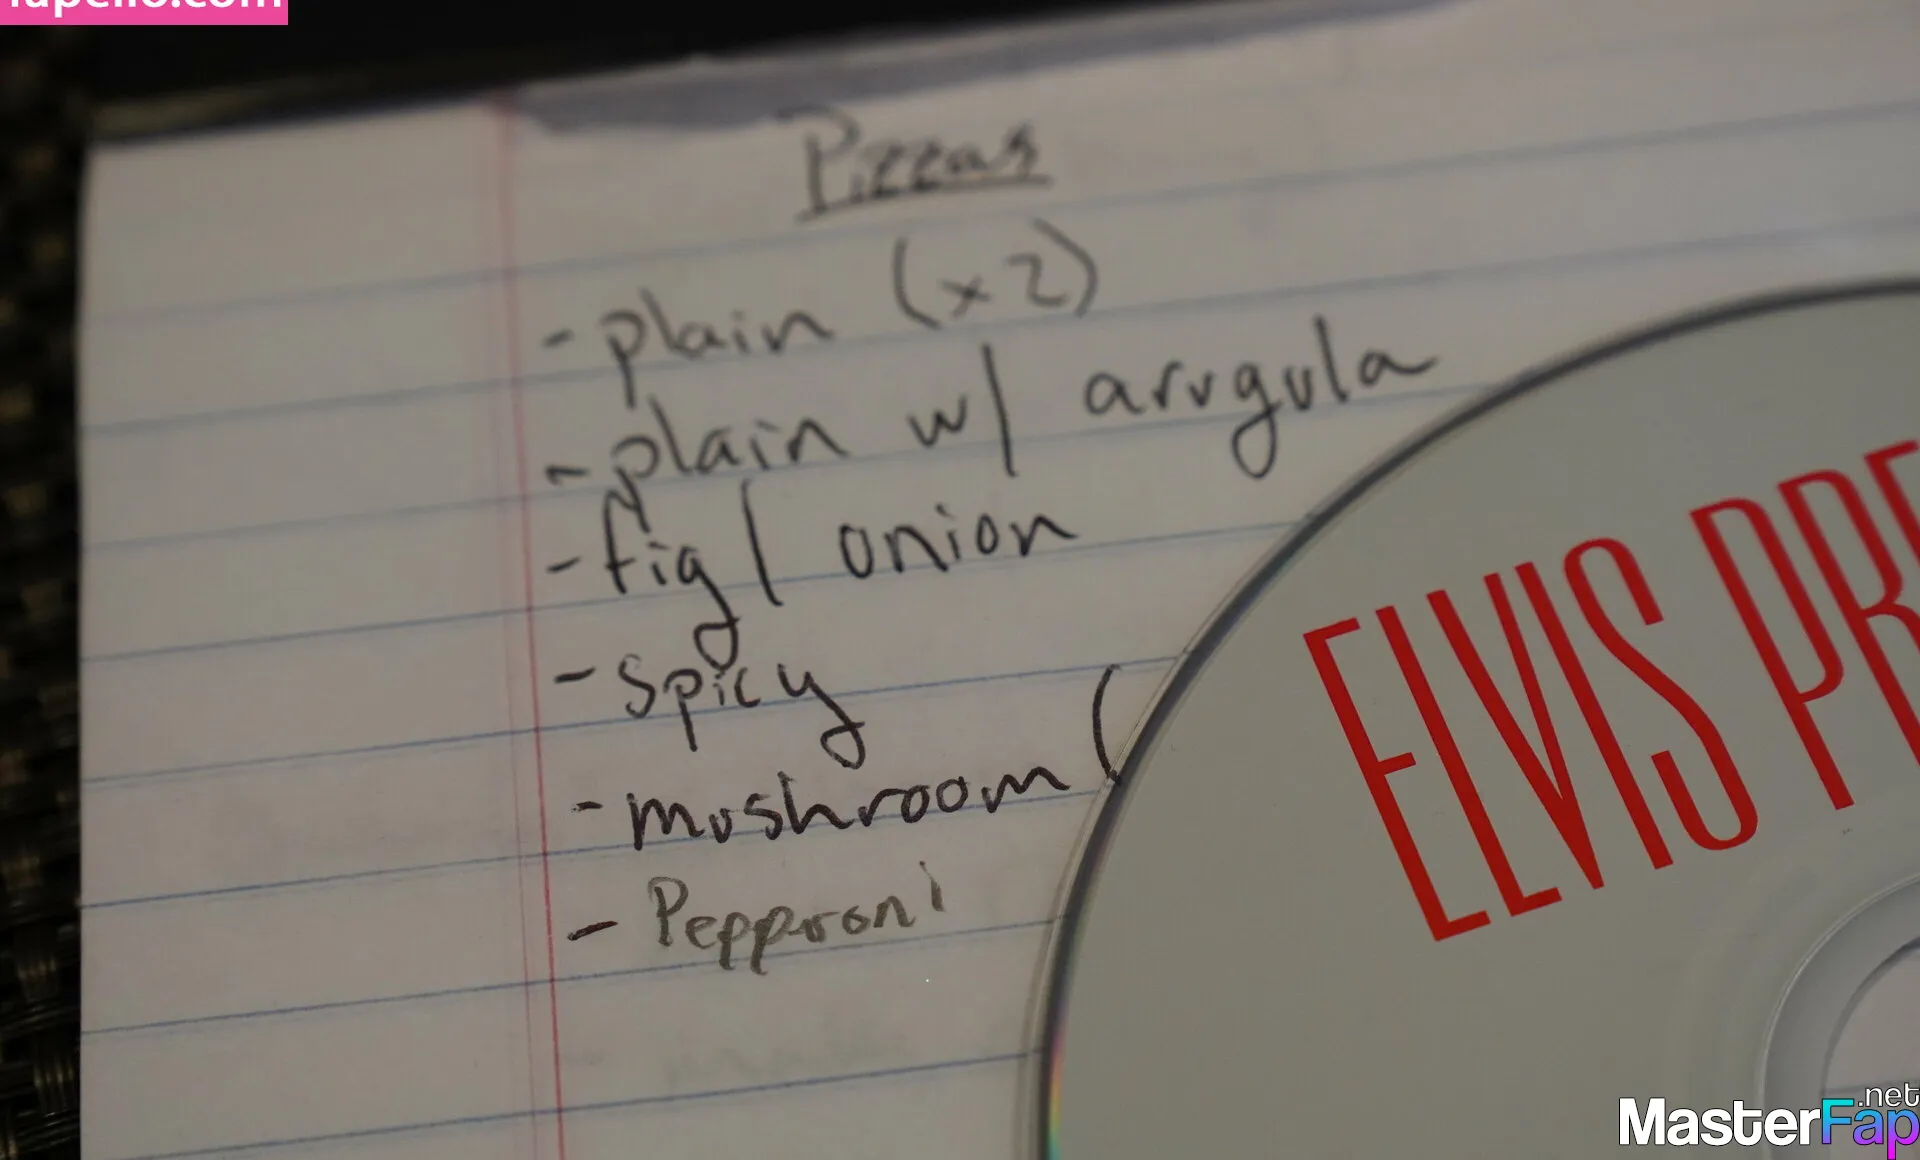 Pizzas
- plain (x2)
- plain w/ arugula
- fig / onion
- spicy
- mushroom (
- Pepproni
ELVIS PRE
MasterFap.net